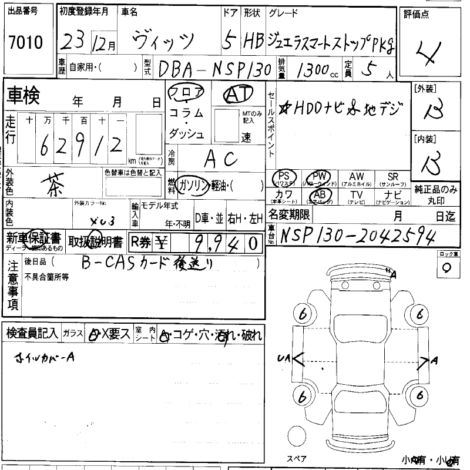 出品番号 初度登録年月 車名 ドア 形状 グレード 評価点
7010 23年12月 ヴィッツ 5 HB ジュエラスマートストップPkg 4
車歴 自家用・( ) 型式 DBA-NSP130 排気量 1300cc 定員 5人
車検 年 月 日
フロア・コラム・ダッシュ AT MTのみ記入 速
セールスポイント ☆HDDナビ 地デジ
[外装] B
[内装] B
走行 十万 万 千 百 十 一
62912 km
冷房 AC
色替車は色替と記入
外装色 茶
燃料 ガソリン・軽油・( )
PS (パワステ) PW (パワーウィンド) AW (アルミホイル) SR (サンルーフ)
カワ (本革シート) AB (エアバック) TV (テレビ) ナビ (ナビゲーション)
純正品のみ丸印
内装色 外装カラーNo. 輸入車 モデル年式 年・不明 D車・並 右H・左H
名変期限 月 日迄
新車保証書 ディーラー印にあるもの 取扱説明書 R券 ¥ 9,940
車台No. NSP130-2042594
注意事項 後日品( B-CASカード後送り )
不具合箇所等
ロック車 0
検査員記入 ガラス A・X要ス 室内シート コゲ・穴・汚れ・破れ
ホイルカバーA
A
6 6
UA A
6 6
スペア 小 有・小 有